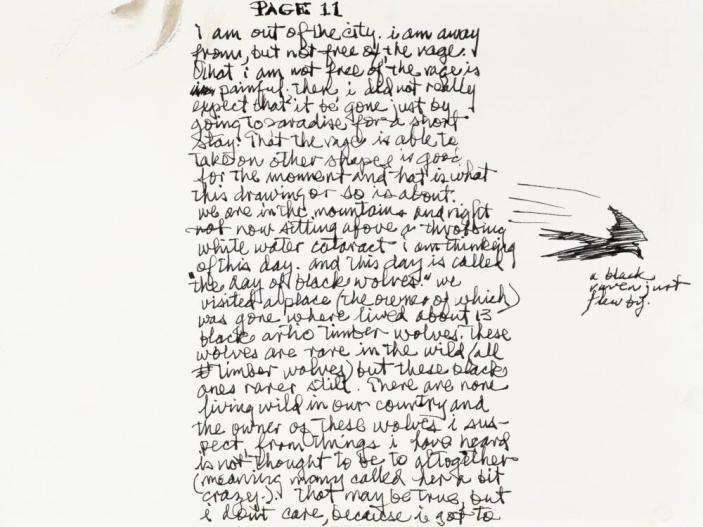 PAGE 11
i am out of the city. i am away
from, but not free of, the rage.
That i am not free of the rage is
painful. Then, i did not really
expect that it be gone just by
going to paradise for a short
stay. That the rage is able to
take on other shapes is good
for the moment and that is what
this drawing or so is about.
we are in the mountains and right
now sitting above a throbbing
white water cataract i am thinking
of this day. and this day is called
"the day of black wolves." we
visited a place (the owner of which)
was gone where lived about 13
black artic timber wolves. these
wolves are rare in the wild (all
timber wolves) but these black
ones rarer still. There are none
living wild in our country and
the owner of these wolves i sus-
pect from things i have heard
is not thought to be to altogether
(meaning many called her a bit
crazy.). That may be true, but
i don't care, because i got to
a black
raven just
flew by.